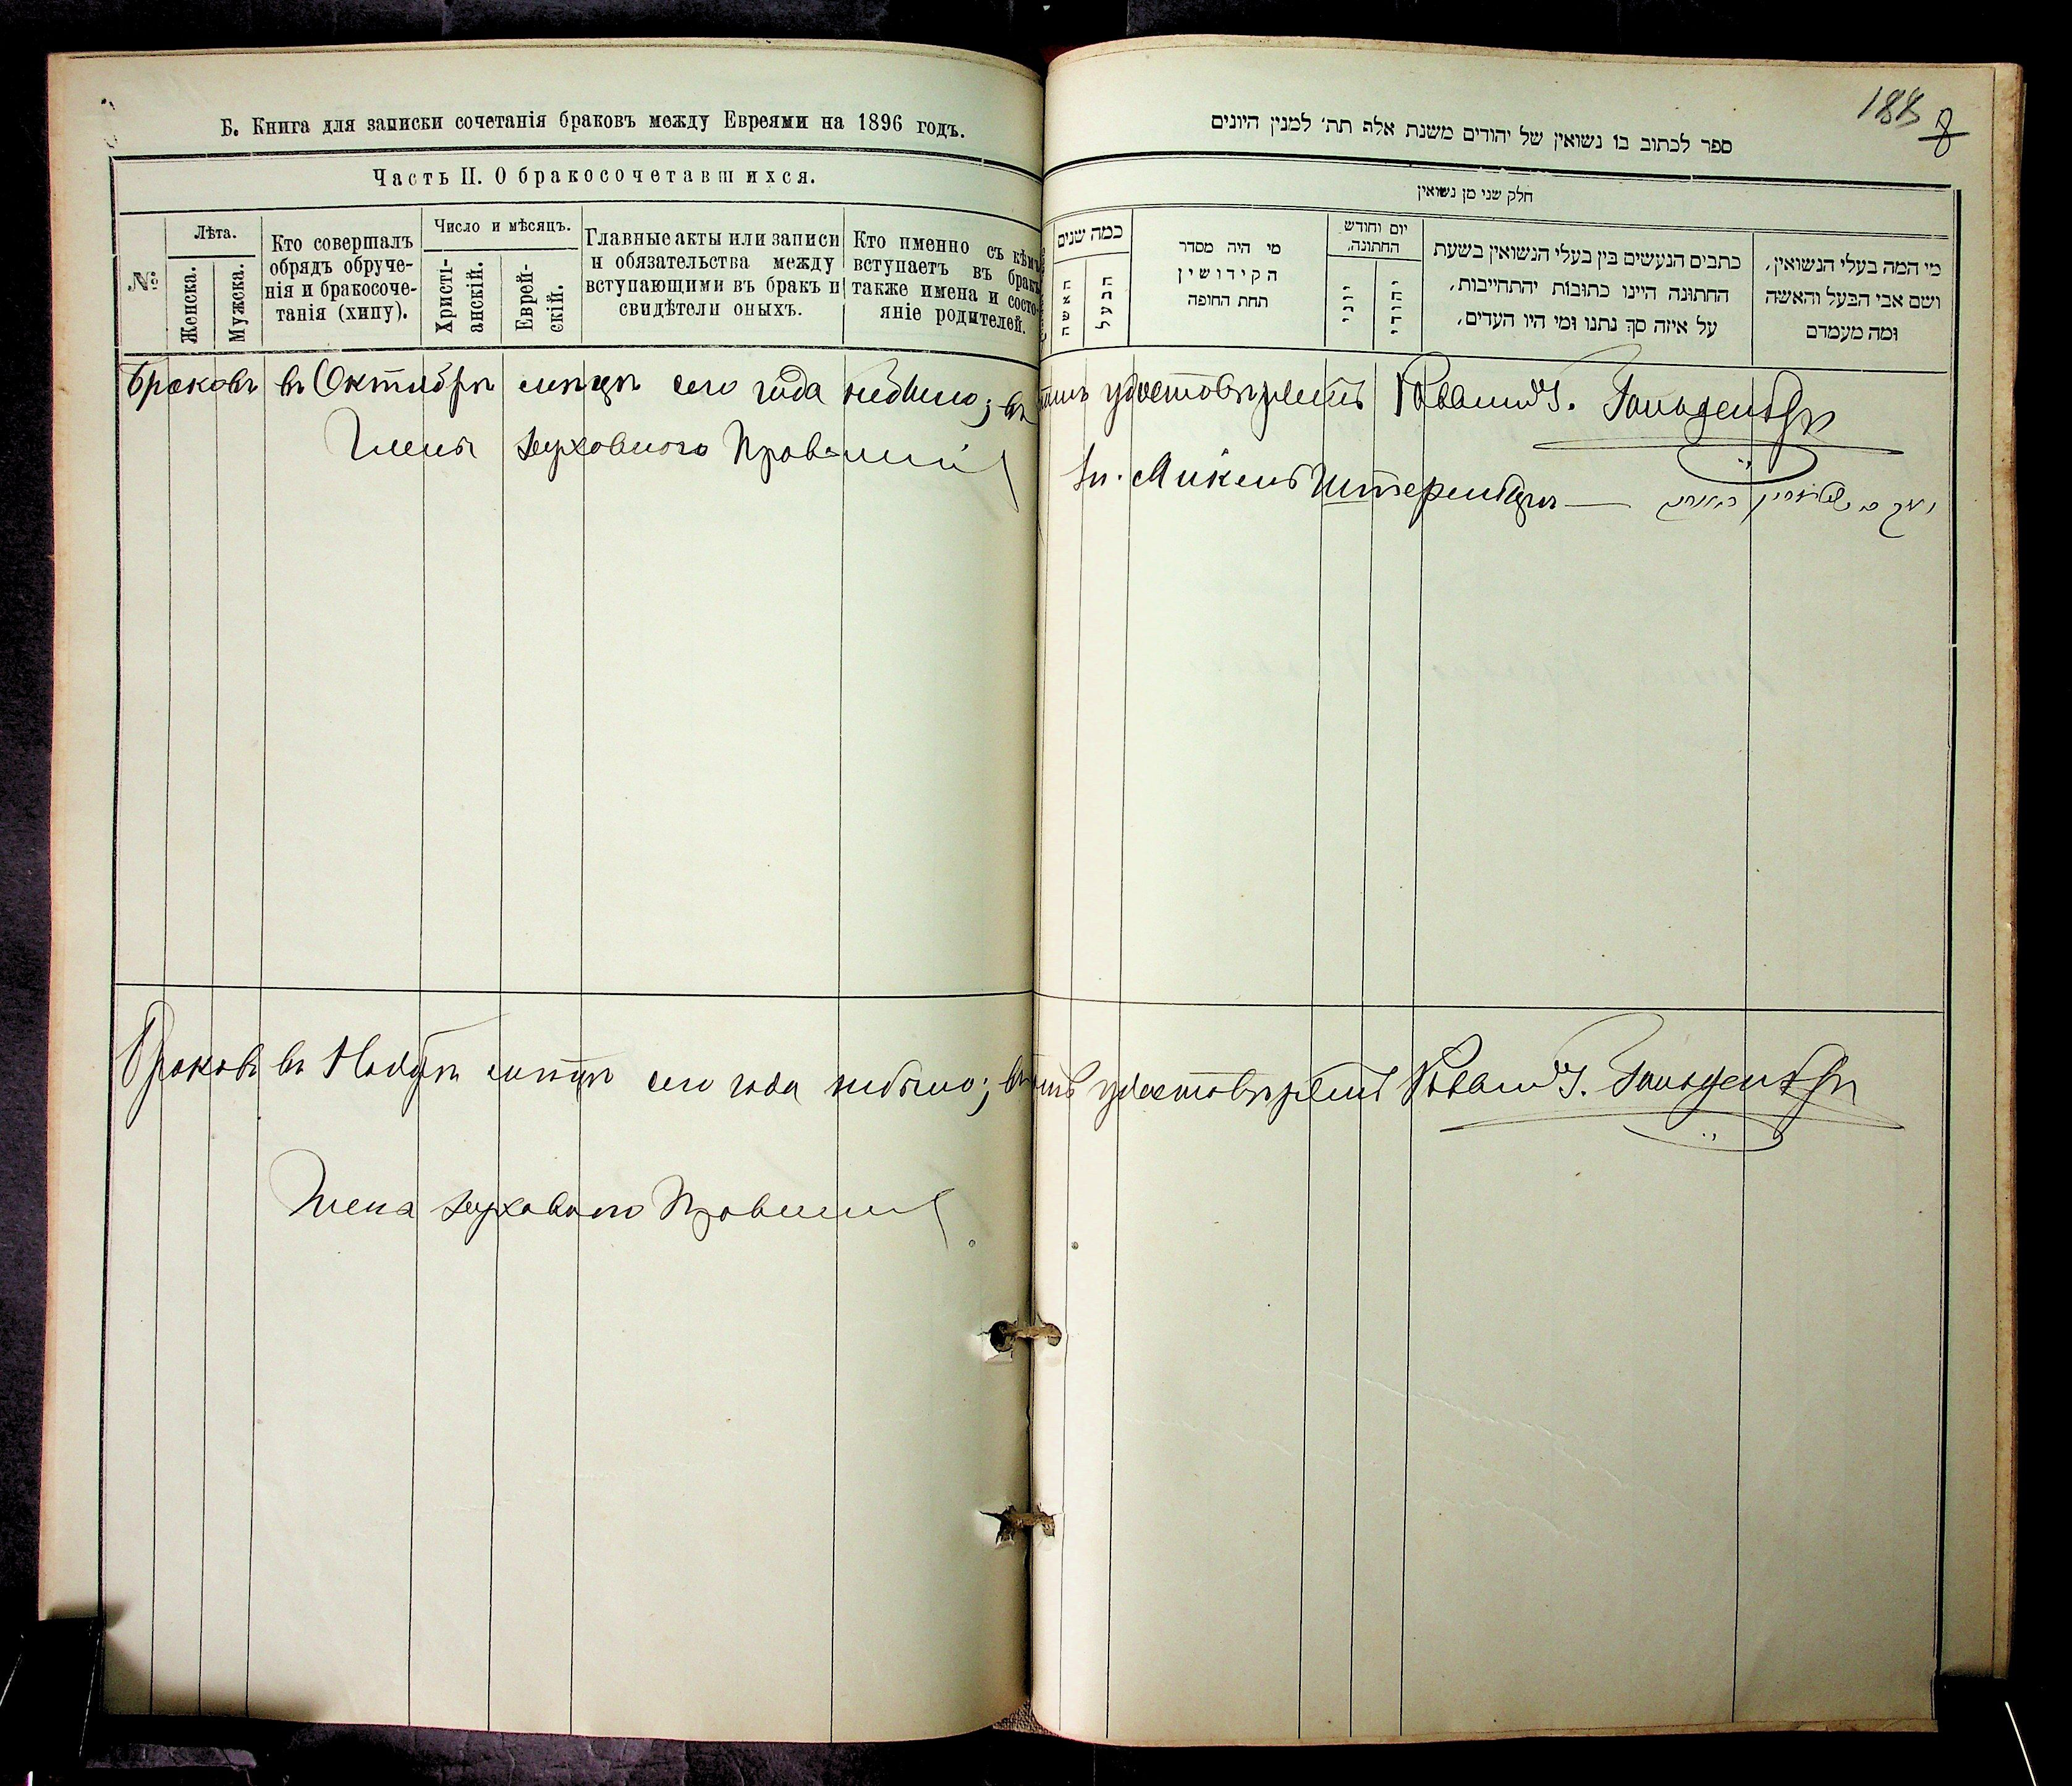 Б. Книга для записки сочетанія браковъ между Евреями на 1896 годъ.
Часть II. О бракосочетавшихся.
№
Лѣта.
Женска.
Мужска.
Кто совершалъ
обрядъ обруче-
нія и бракосоче-
танія (хипу).
Число и мѣсяцъ.
Христі-
анскій.
Еврей-
скій.
Главные акты или записи
и обязательства между
вступающими въ бракъ и
свидѣтели оныхъ.
Кто именно съ кѣмъ
вступаетъ въ бракъ
также имена и состо-
яніе родителей.
188 8
ספר לכתוב בו נשואין של יהודים משנת אלף תת' למנין היונים
חלק שני מן נשואין
כמה שנים
האשה
הבעל
מי היה מסדר
הקידושין
תחת החופה
יום וחודש
החתונה.
יוני
יהודי
כתבים הנעשים בין בעלי הנשואין בשעת
החתונה היינו כתובות יהתחייבות,
על איזה סך נתנו ומי היו העדים,
מי המה בעלי הנשואין,
ושם אבי הבעל והאשה
ומה מעמדם
Браковъ въ Октябрѣ мѣсяцѣ сего года небыло; въ томъ удостовѣряетъ Раввинъ
Члены Духовного Правленій
Браковъ въ Ноябрѣ мѣсяцѣ сего года небыло; въ томъ удостовѣряетъ Раввинъ
Члена Духовного Правленія